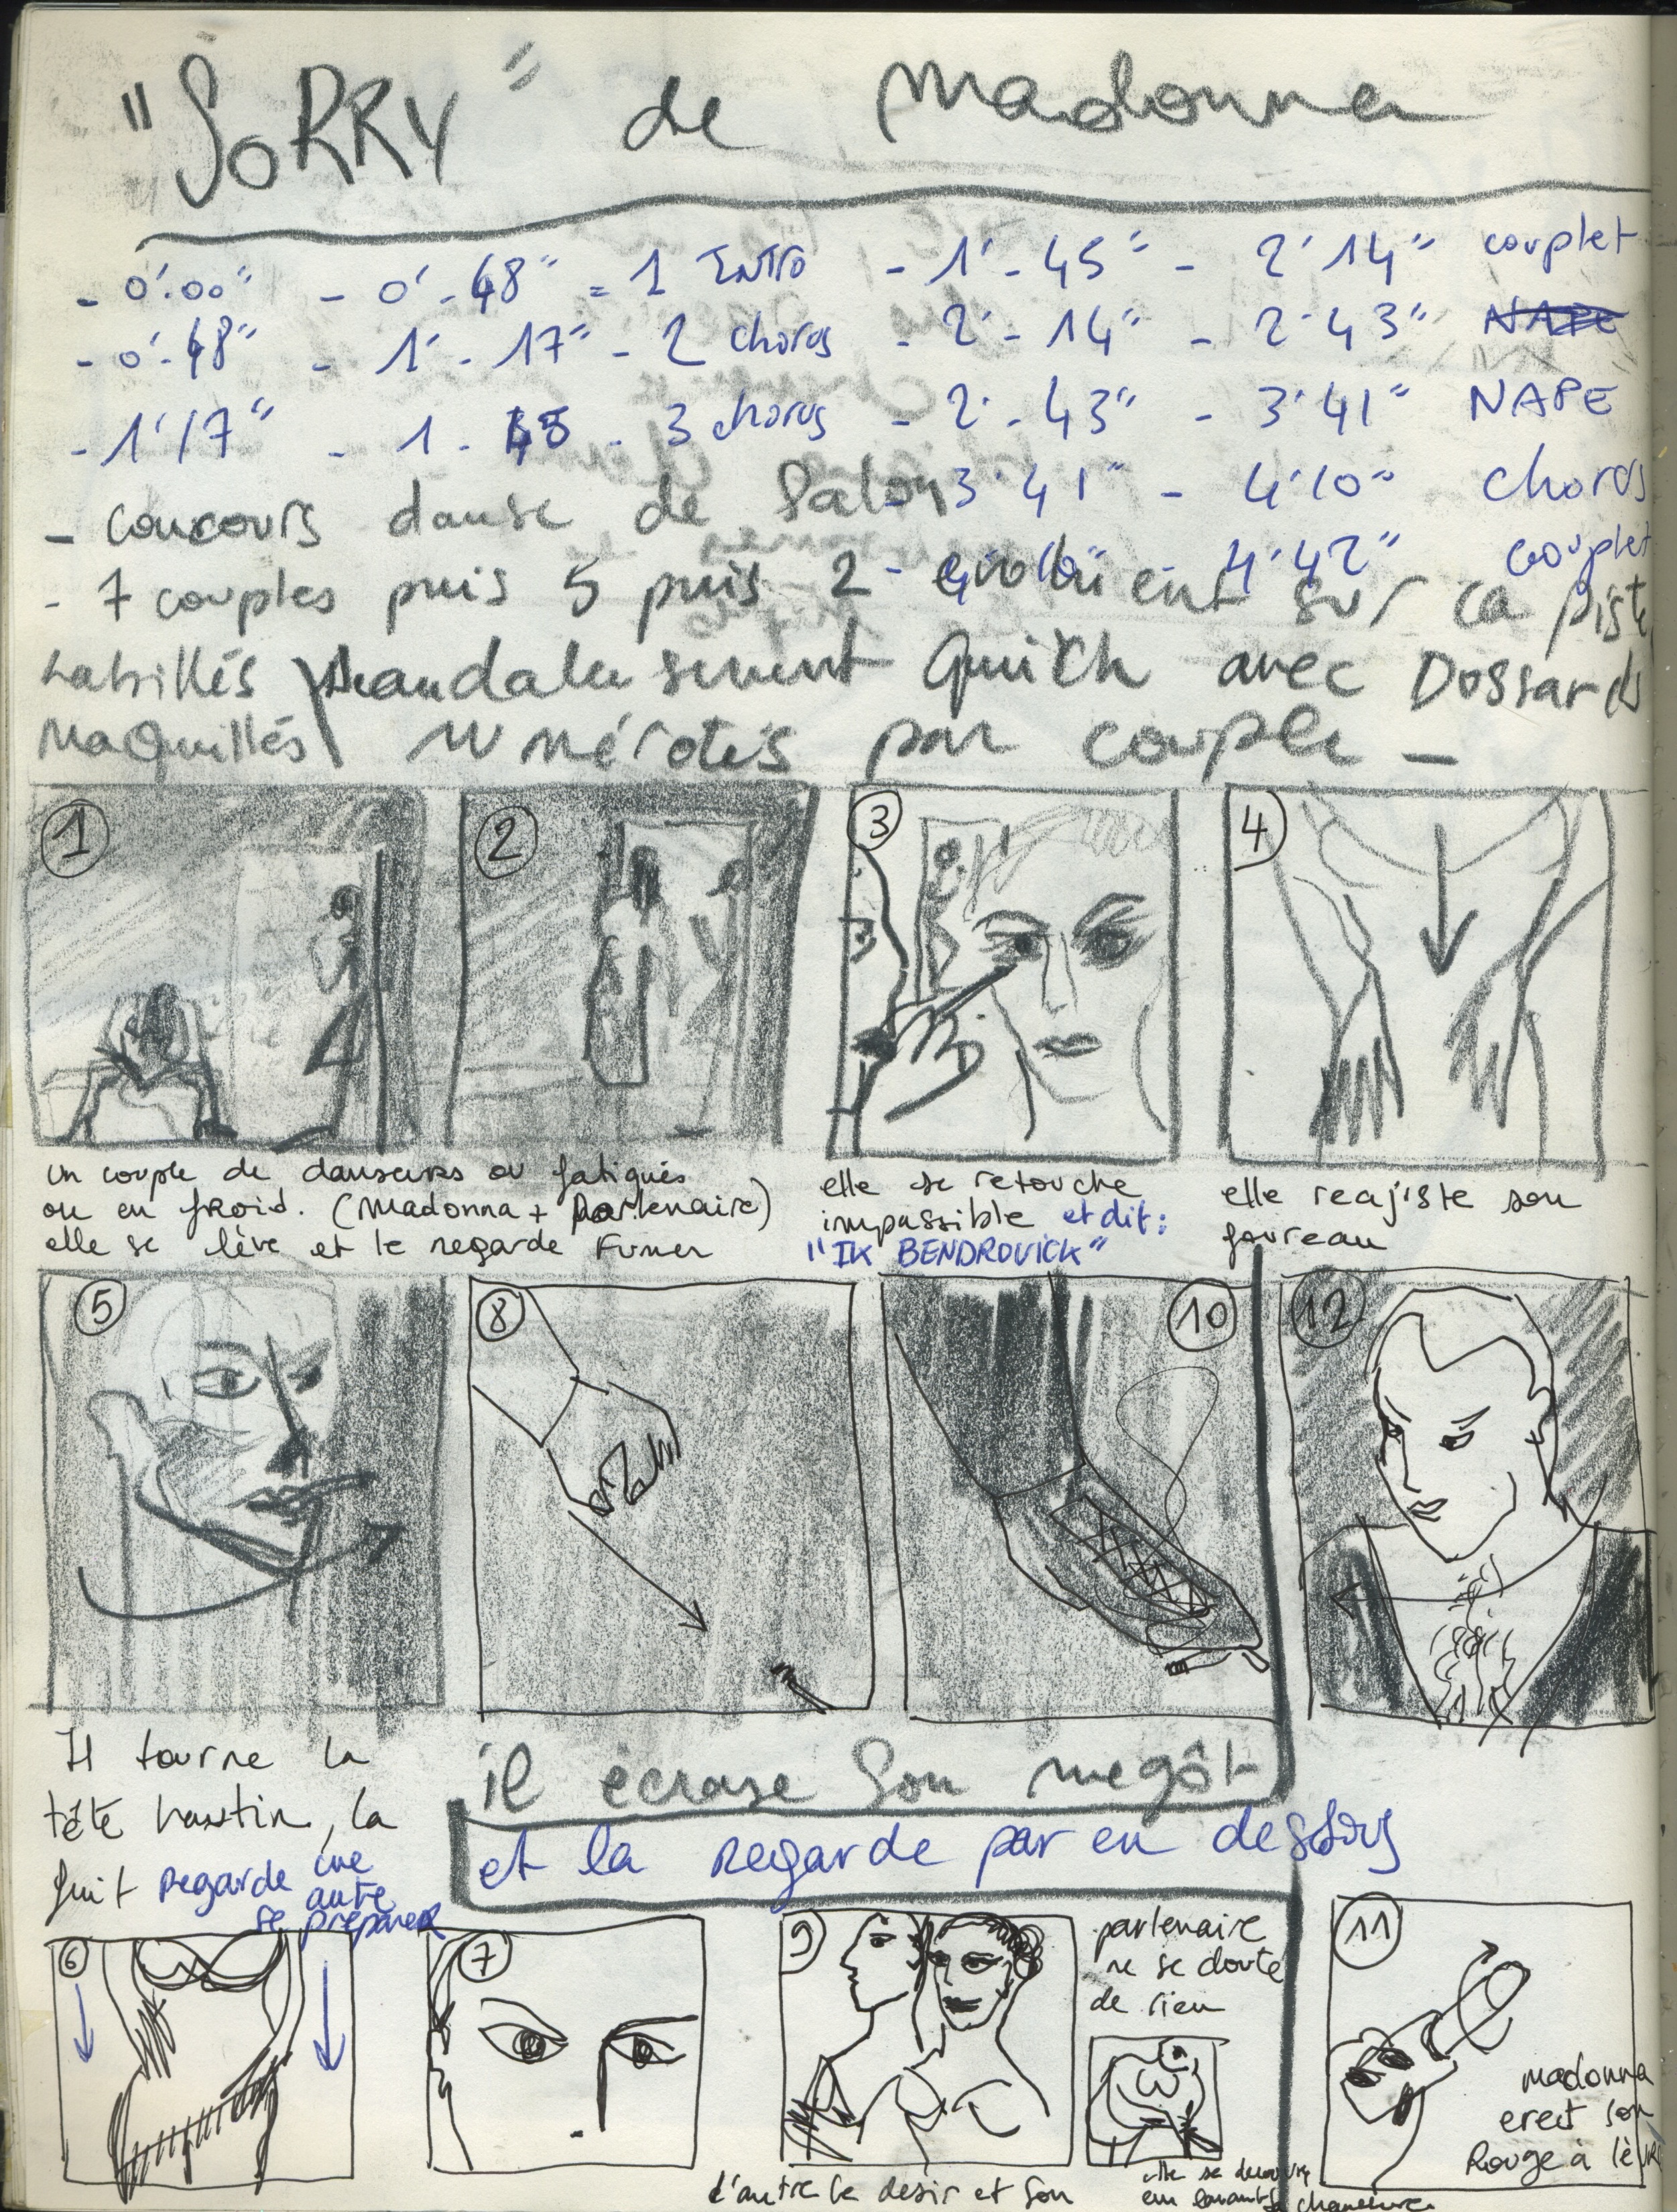 "SORRY" de Madonna
- 0'.00" - 0'.48" = 1 INTRO
- 0'.48" - 1'-17" - 2 chorus
- 1'17" - 1-45 - 3 chorus
- 1'-45" - 2'14" couplet
- 2'-14" - 2'43" NAPE
- 2'-43" - 3'41" NAPE
3'41" - 4'10" Chorus
- 4'42" couplet
- concours danse de Salon
- 7 couples puis 5 puis 2 évoluent sur la piste
habillés scandaleusement Quitch avec Dossards
Maquillés numérotés par couple -
1
2
3
4
un couple de danseurs ou fatigués
ou en froid. (Madonna + Partenaire)
elle se lève et le regarde Fumer
elle se retouche
impassible et dit:
"IK BENDROVICK"
elle reajiste son
foureau
5
8
10
12
Il tourne la
tête hautin, la
fuit regarde une
autre
se préparer
il écrase Son megôt
et la regarde par en dessous
6
7
9
partenaire
ne se doute
de rien
11
madonna
erect son
Rouge à lèvre
d'autre le desir et son
elle se
en
chaussure